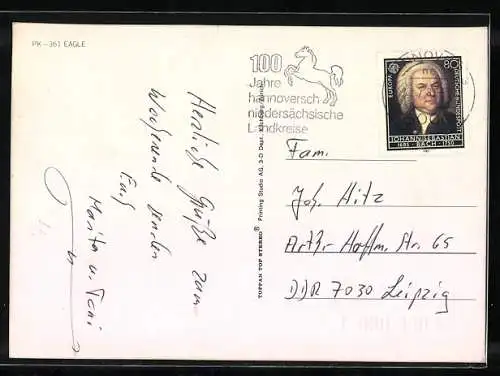 PK - 361 EAGLE
Herzliche Grüße zum
Wochenende senden
Euch
Marita u. Toni
TOPPAN TOP STEREO® Printing Studio AG, 3-D Dept.
100
Jahre
hannoversch
niedersächsische
Landkreise
HANNOVER
EUROPA
80
DEUTSCHE BUNDESPOST
JOHANN SEBASTIAN
1685 BACH 1750
Fam.
Joh. Hitz
Arthr Hoffm. Str. 65
DDR 7030 Leipzig